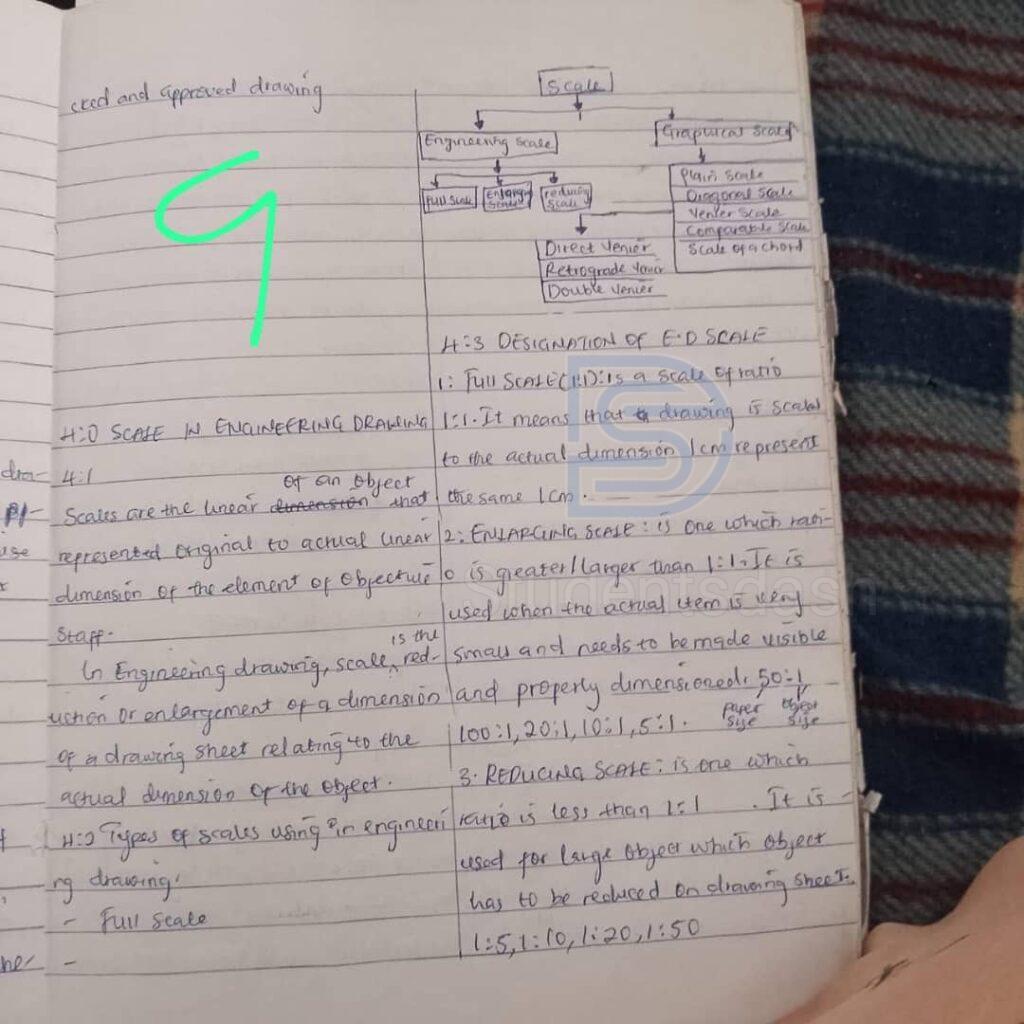 cted and approved drawing
9
4:0 SCALE IN ENGINEERING DRAWING
4:1
of an object
Scales are the linear dimension that
represented original to actual linear
dimension of the element of
Staff.
is the
In Engineering drawing, scale, red-
uction or enlargement of a dimension
of a drawing sheet relating to the
actual dimension of the object.
4:2 Types of scales using in engineeri
ng drawing.
- Full Scale
-
Scale
Engineering Scale
Graphical Scale
Full Scale
Enlarging Scale
reducing Scale
Plain Scale
Diagonal Scale
Venier Scale
Comparable Scale
Scale of a chord
Direct Venier
Retrograde Venier
Double Venier
4:3 DESIGNATION OF E.D SCALE
1: FULL SCALE(1:1): is a scale of ratio
1:1. It means that drawing is scaled
to the actual dimension 1cm represent
the same 1cm.
2: ENLARGING SCALE: is one which rati-
o is greater/larger than 1:1. It is
used when the actual item is very
small and needs to be made visible
and properly dimensioned. 50:1
paper size object size
100:1, 20:1, 10:1, 5:1.
3. REDUCING SCALE: is one which
ratio is less than 1:1 . It is
used for large object which object
has to be reduced on drawing sheet.
1:5, 1:10, 1:20, 1:50
dra-
use
Studentsdash